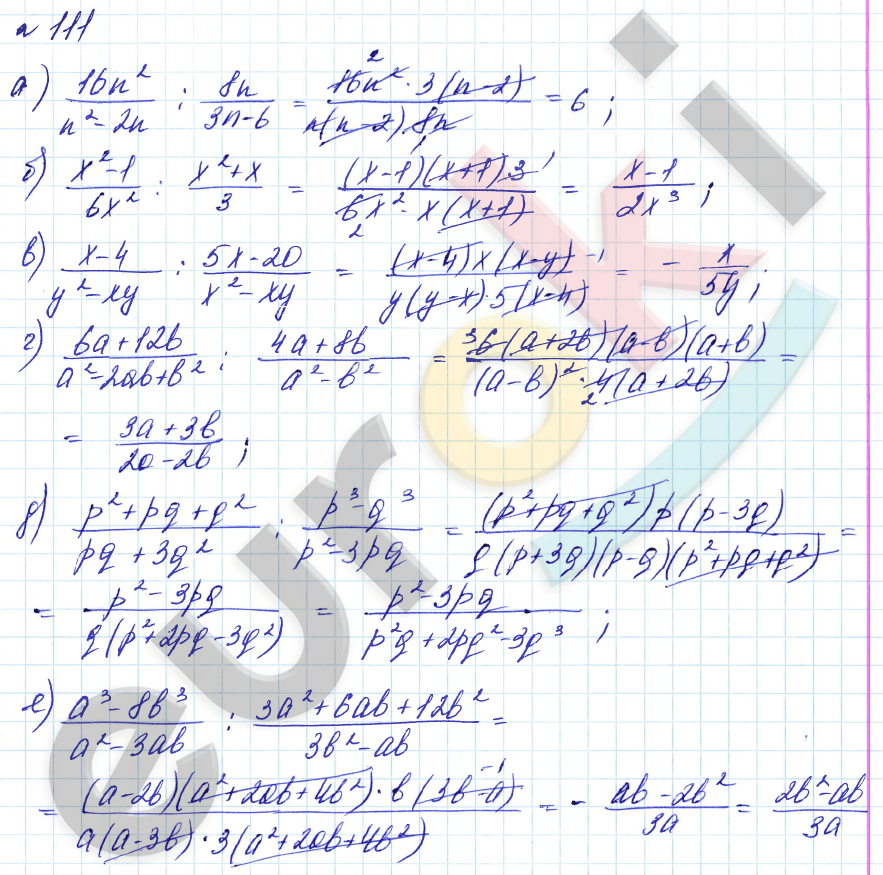 № 111
а) 16n²/(n²-2n) : 8n/(3n-6) = (16n² · 3(n-2))/(n(n-2) 8n) = 6 ;
б) (x²-1)/6x² : (x²+x)/3 = ((x-1)(x+1) 3)/(6x² · x(x+1)) = (x-1)/2x³ ;
в) (x-4)/(y²-xy) : (5x-20)/(x²-xy) = ((x-4)x(x-y))/(y(y-x)·5(x-4)) = - x/5y ;
г) (6a+12b)/(a²-2ab+b²) : (4a+8b)/(a²-b²) = (6(a+2b)(a-b)(a+b))/((a-b)²·4(a+2b)) =
= (3a+3b)/(2a-2b) ;
д) (p²+pq+q²)/(pq+3q²) : (p³-q³)/(p²-3pq) = ((p²+pq+q²)p(p-3q))/(q(p+3q)(p-q)(p²+pq+q²)) =
= (p²-3pq)/(q(p²+2pq-3q²)) = (p²-3pq)/(p²q+2pq²-3q³) ;
е) (a³-8b³)/(a²-3ab) : (3a²+6ab+12b²)/(3b²-ab) =
= ((a-2b)(a²+2ab+4b²)·b(3b-a))/(a(a-3b)·3(a²+2ab+4b²)) = - (ab-2b²)/3a = (2b²-ab)/3a
euroki